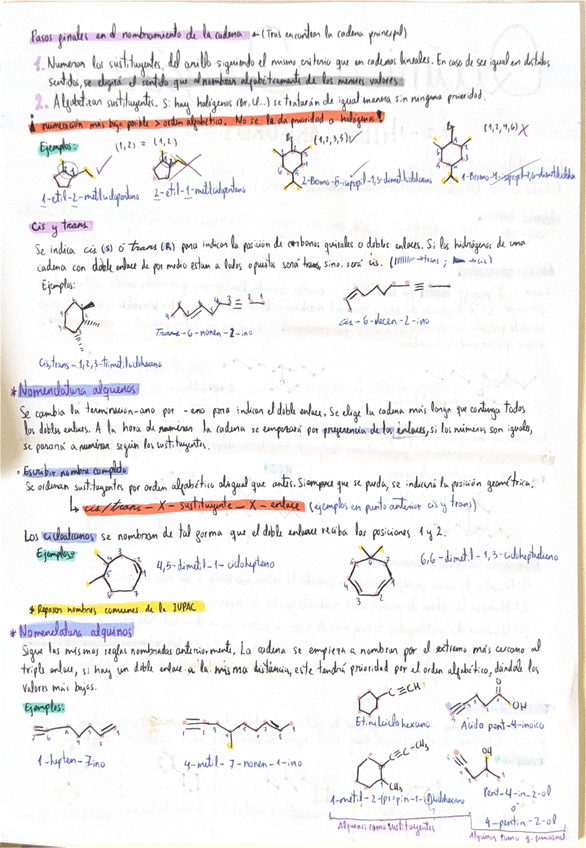 Pasos finales en el nombramiento de la cadena ← (Tras encontrar la cadena principal)
1. Numeran los sustituyentes del anillo siguiendo el mismo criterio que en cadenas lineales. En caso de ser igual en distintos
sentidos, se elegirá el sentido que al nombrar alfabéticamente de los menores valores.
2. Alfabetizan sustituyentes. Si hay halógenos (Br, Cl...) se tratarán de igual manera sin ninguna prioridad.
numeración más baja posible > orden alfabético. No se le da prioridad a halógenos!
Ejemplos:
(1,2) = (1,2)
(1,2,3,5) ✓
(1,2,4,6) X
Br
Br
1-etil-2-metilciclopentano
2-etil-1-metilciclopentano
Cis y trans
Se indica cis (S) ó trans (R) para indicar la posición de carbonos quirales o dobles enlaces. Si los hidrógenos de una
cadena con doble enlace de por medio estan a lados opuestos será trans, sino, será cis. (→trans; →cis)
Ejemplos:
Trans-6-nonen-2-ino
cis-6-decen-2-ino
Cis,trans-1,2,3-trimetilciclohexano
* Nomenclatura alquenos
Se cambia la terminación -ano por -eno para indicar el doble enlace. Se elige la cadena más larga que contenga todos
los dobles enlaces. A la hora de numerar la cadena se empezará por preferencia de los enlaces, si los números son iguales,
se pasará a numerar según los sustituyentes.
• Escribir nombre completo
Se ordenan sustituyentes por orden alfabético al igual que antes. Siempre que se pueda, se indicará la posición geométrica.
↳ cis/trans — X — sustituyente — X — enlace (ejemplos en punto anterior cis y trans)
Los cicloalcanos se nombran de tal forma que el doble enlace reciba las posiciones 1 y 2.
Ejemplos:
4,5-dimetil-1-ciclohepteno
6,6-dimetil-1,3-cicloheptadieno
* Repasar nombres comunes de la IUPAC
* Nomenclatura alquinos
Sigue las mismas reglas nombradas anteriormente. La cadena se empieza a nombrar por el extremo más cercano al
triple enlace, si hay un doble enlace a la misma distancia, este tendrá prioridad por el orden alfabético, dándole los
valores más bajos.
Ejemplos:
1-hepten-7-ino
4-metil-7-nonen-1-ino
C≡CH
Etinilciclohexano
O
OH
Ácido pent-4-inoico
C≡C-CH₃
CH₃
1-metil-2-(propin-1-il)ciclohexano
OH
Pent-4-in-2-ol
o'
4-pentin-2-ol
Alquinos como sustituyentes
Alquinos como g. funcional